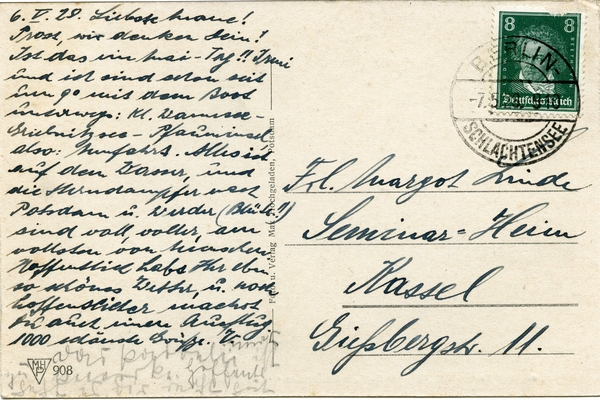 6. V. 29. Liebste
Prost, wir denken Dein!
Ist das ein Mai-Tag!! Irmi
und ich sind schon seit
mit dem Boot
unterwegs: Kl. Wannsee-
Griebnitzsee - Pfaueninsel
also: Alles ist
auf dem Wasser, und
die Sterndampfer nach
Potsdam u. Werder (Blüte!!)
sind voll, voller, am
vollsten von Menschen
Hoffentlich habt Ihr eben
so schönes Wetter u. noch
hoffentlicher machst
Du auch einen Ausflug
1000 schönste Grüße. D.
MH
P
908
Foto u. Verlag Max Hochgeladen, Potsdam
8 8
Deutsches Reich
BERLIN-
-7.5
SCHLACHTENSEE
Frl. Margot Linde
Seminar-Heim
Kassel
Gießbergstr. 11.